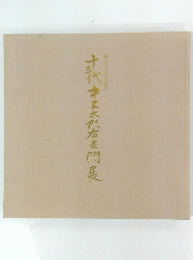 十三代中里太郎右衛門展